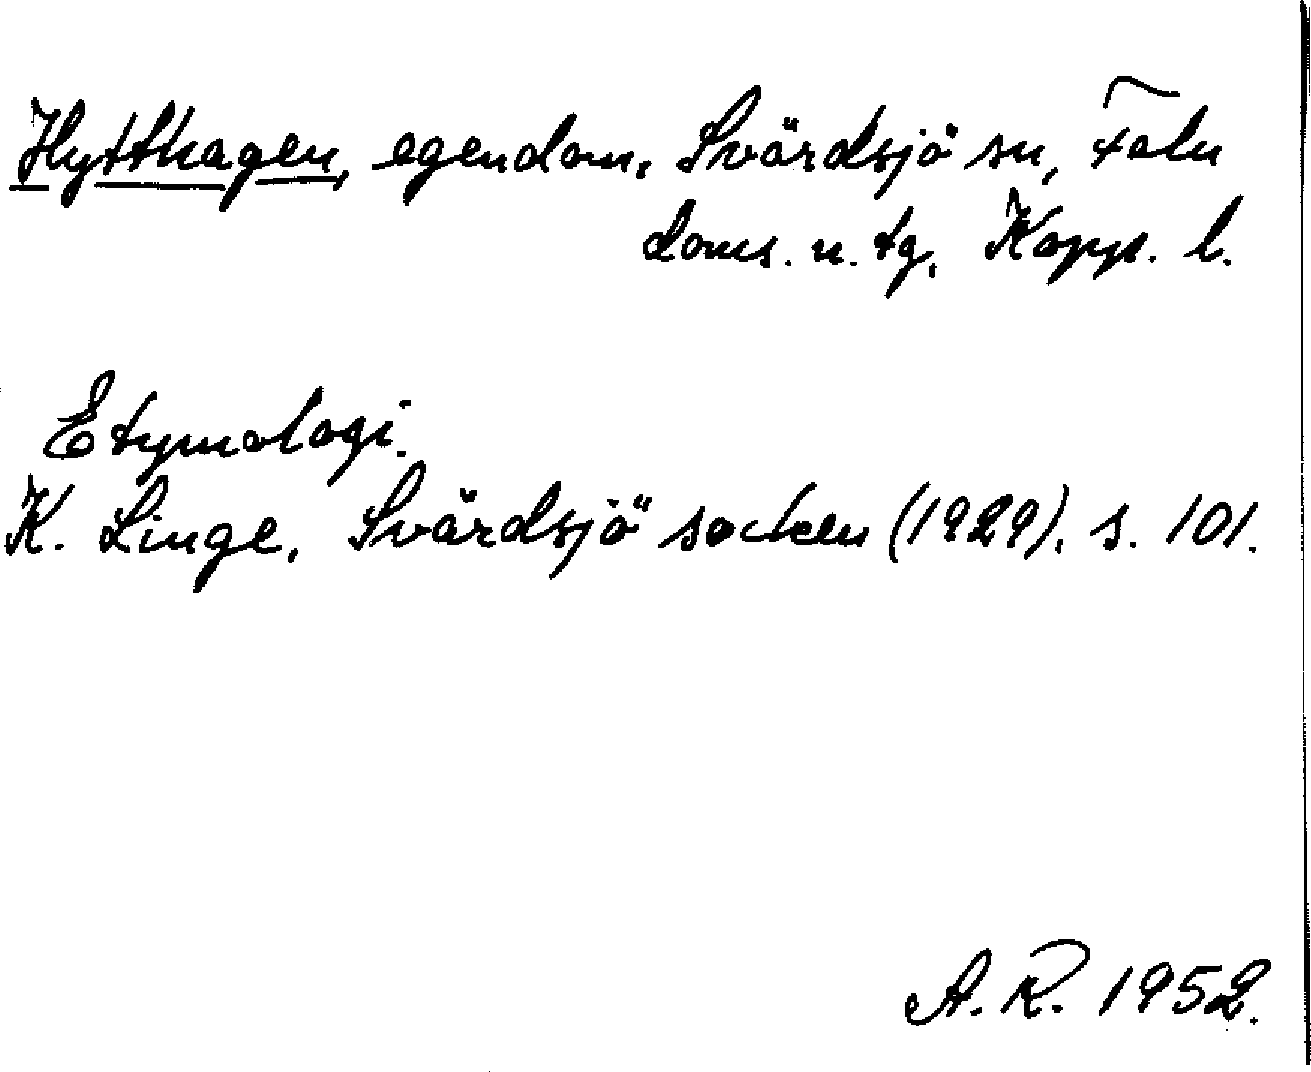 Hytthagen, egendom, Svärdsjö sn, Falu
doms. o. tg, Kopp. l.
Etymologi.
K. Linge, Svärdsjö socken (1929), s. 101.
A. R. 1952.